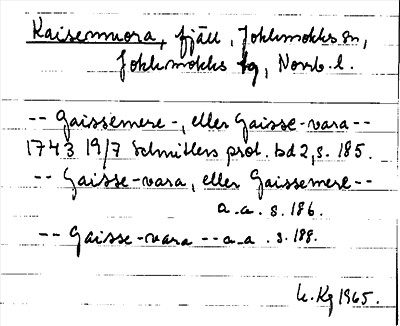 Kaisenmuora, fjäll, Jokkmokks sn,
Jokkmokks tg, Norrb. l.
-- Gaissemere-, eller Gaisse-vara --
1743 19/7 Schnitlers prot. bd 2, s. 185.
-- Gaisse-vara, eller Gaissemere --
a.a. s. 186.
-- Gaisse-vara -- a.a. s. 188.
1965.